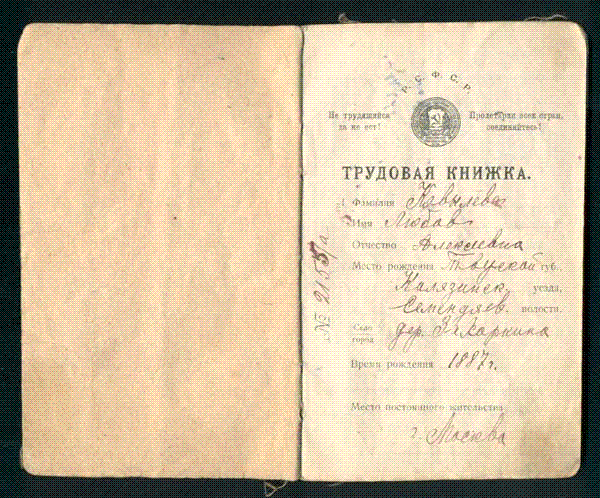 Р. С. Ф. С. Р.
Не трудящийся Пролетарии всех стран,
да не ест! соединяйтесь!
ТРУДОВАЯ КНИЖКА.
Фамилия Ковылева
Имя Любовь
Отчество Алексеевна
Место рождения Тверской губ.
Калязинск. уезда,
Семендяев. волости,
Село
город дер. Захаркина
Время рождения 1887 г.
Место постоянного жительства
г. Москва
№ 2155/а